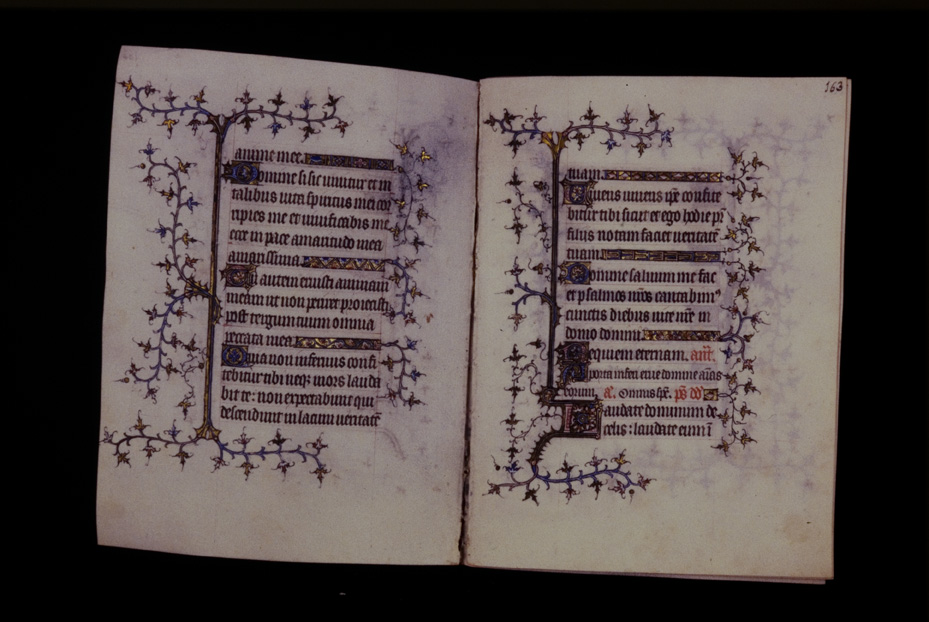 anime mee.
Domine si sic vivitur et in
talibus vita spiritus mei cor
ripies me et vivificabis me
ecce in pace amaritudo mea
amarissima.
Tu autem eruisti animam
meam ut non periret proiecisti
post tergum tuum omnia
peccata mea.
Quia non infernus confi
tebitur tibi neqz mors lauda
bit te: non expectabunt qui
descendunt in lacum veritatē
163
tuam.
Vivens vivens ip̄e confite
bitur tibi sicut et ego hodie pr̄
filiis notam faciet veritatē
tuam.
Domine salvum me fac
et psalmos nr̄os cantabim
cunctis diebus vite nr̄e in
domo domini.
Requiem eternam. añt.
A porta inferi erue domine aīas
eorum. a. Omnis sp̄c. ps̄ dd̄
Laudate dominum de
celis: laudate eum ī